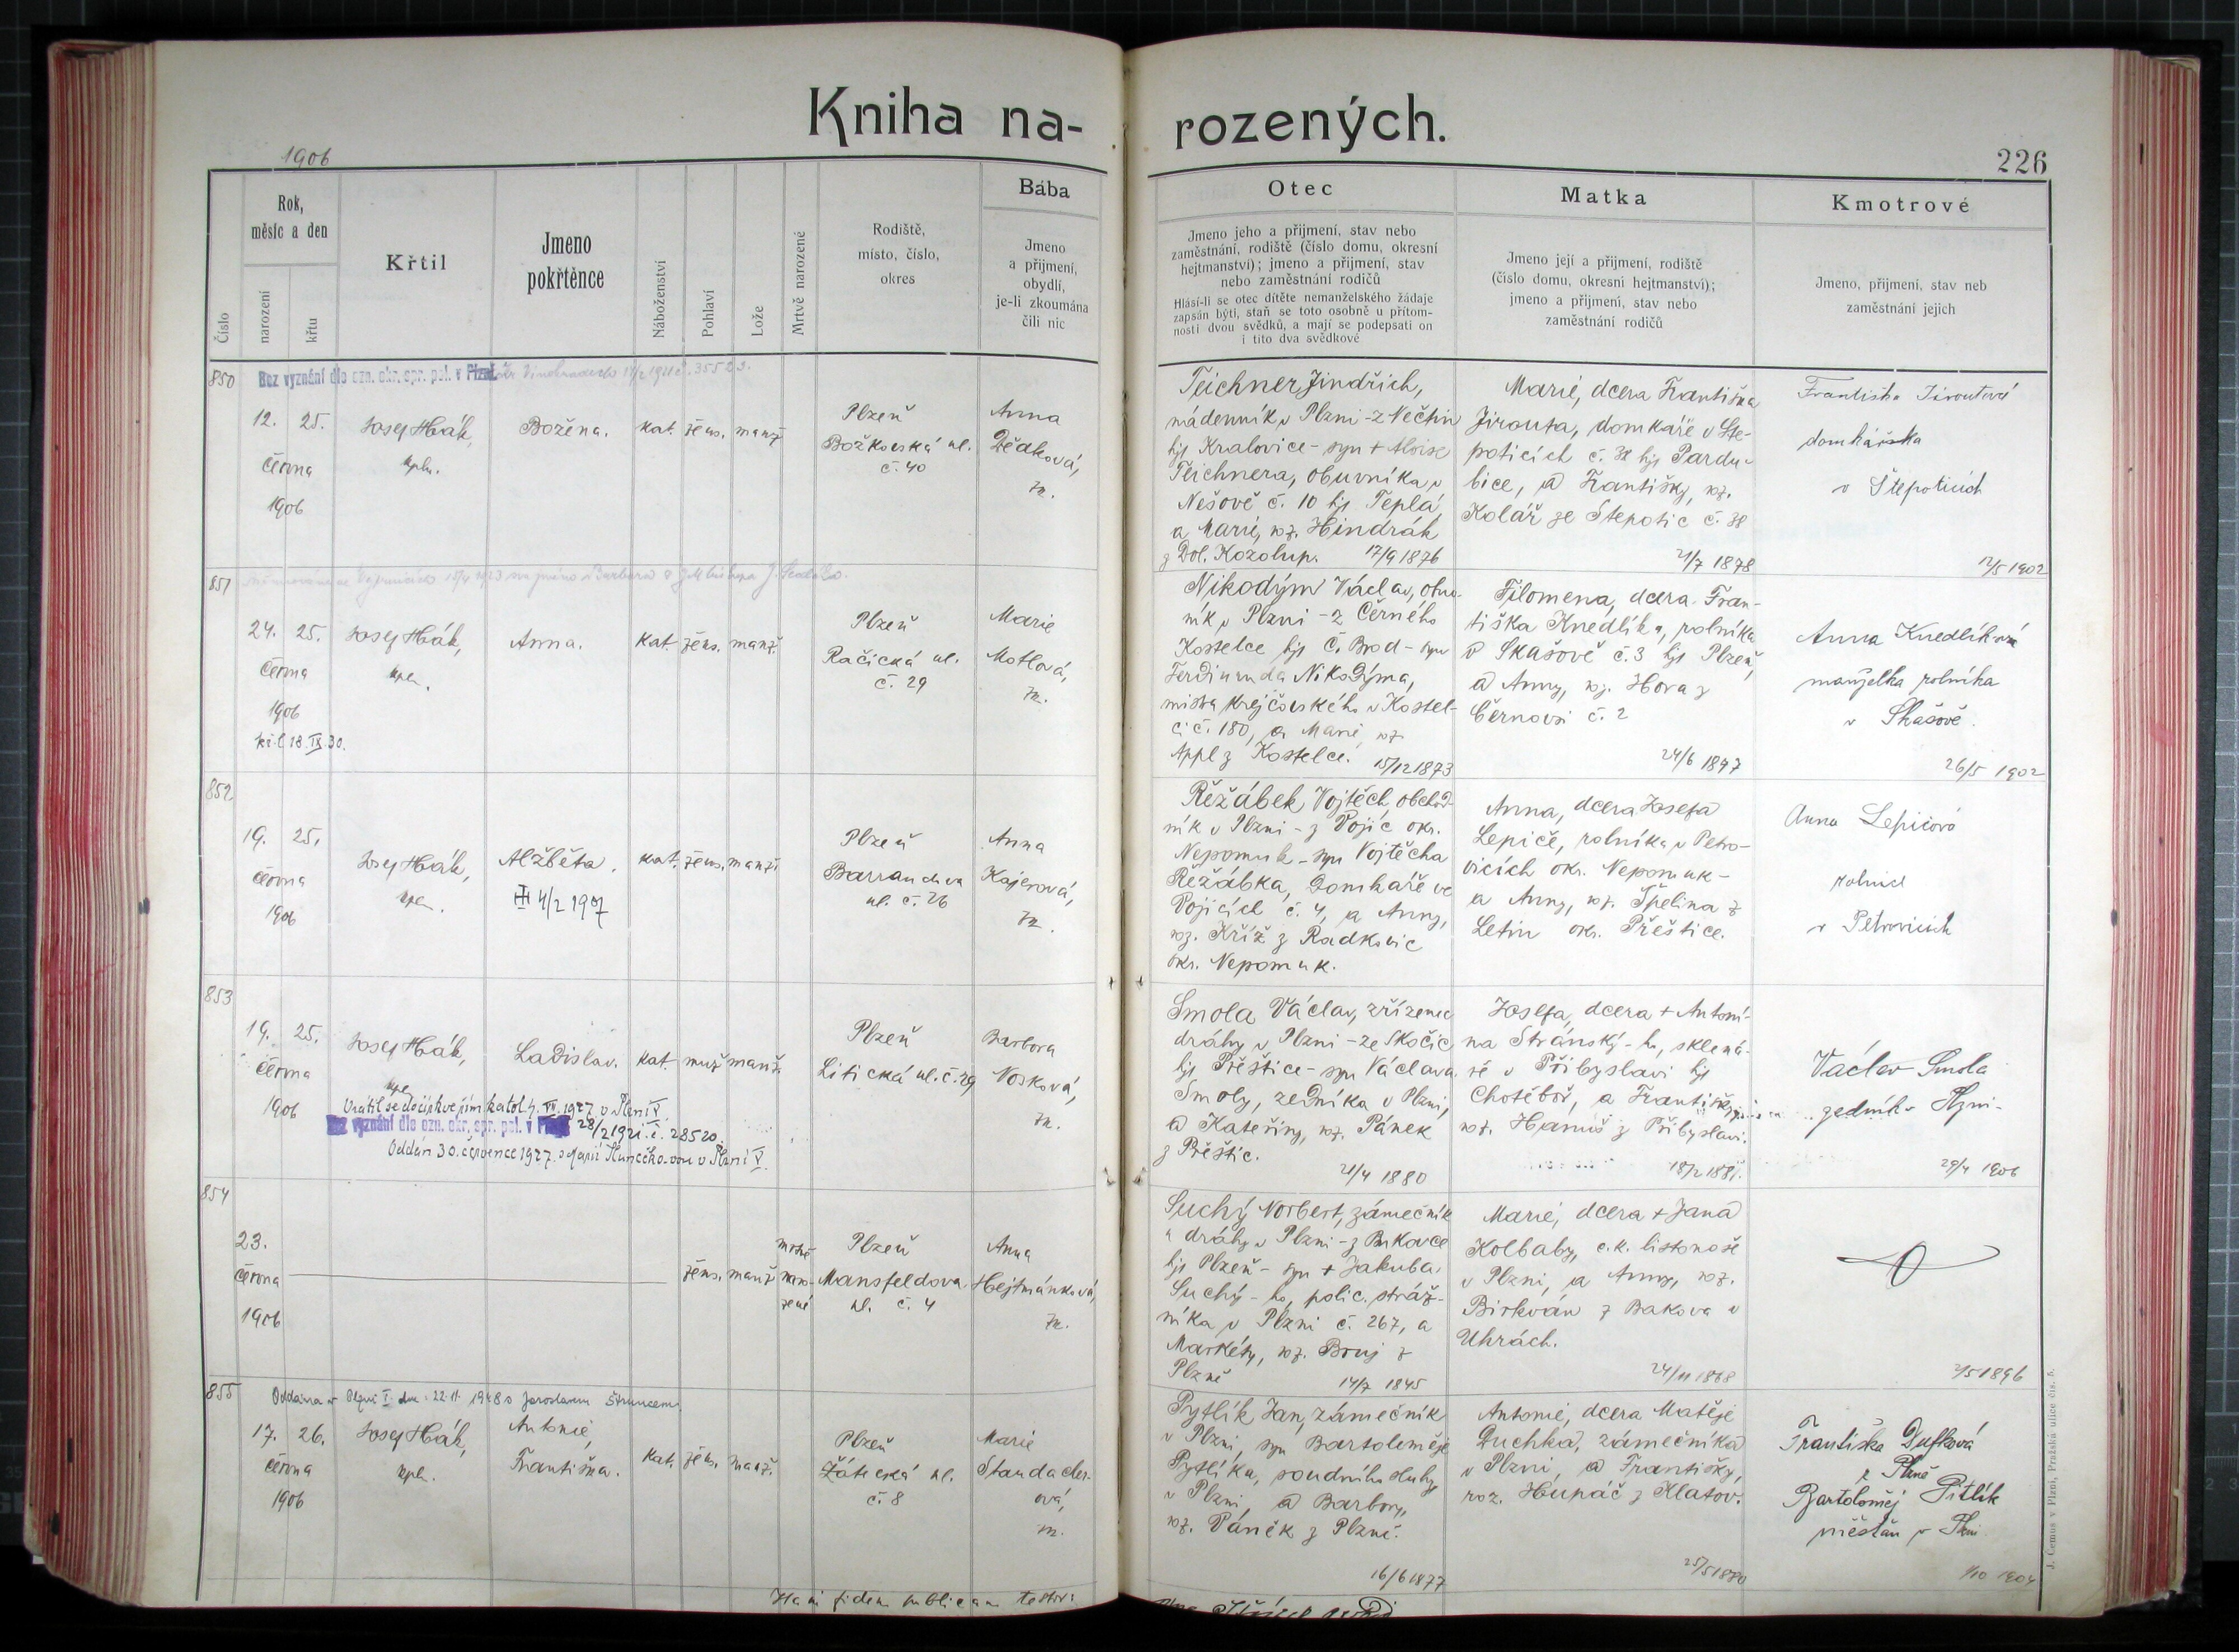 Kniha na-
rozených.
1906
226
Číslo
Rok,
měsíc a den
narození
křtu
Křtil
Jmeno
pokřtěnce
Náboženství
Pohlaví
Lože
Mrtvě narozené
Rodiště,
místo, číslo,
okres
Bába
Jmeno
a přijmení,
obydlí,
je-li zkoumána
čili nic
Otec
Jmeno jeho a přijmení, stav nebo
zaměstnání, rodiště (číslo domu, okresní
hejtmanství); jmeno a přijmení, stav
nebo zaměstnání rodičů
Hlásí-li se otec dítěte nemanželského žádaje
zapsán býti, staň se toto osobně u přítom-
nosti dvou svědků, a mají se podepsati on
i tito dva svědkové
Matka
Jmeno její a přijmení, rodiště
(číslo domu, okresní hejtmanství);
jmeno a přijmení, stav nebo
zaměstnání rodičů
Kmotrové
Jmeno, přijmení, stav neb
zaměstnání jejich
850
Bez vyznání dle ozn. okr. spr. pol. v
12. 25.
června
1906
Josef Hák,
kpln.
Božena.
kat. žens. manž.
Plzeň
Božkovská ul.
č. 40
Anna
zk.
Teichner Jindřich,
nádenník v Plzni - z Nečtin
hjt Kralovice - syn + Aloise
Teichnera, obuvníka v
Nešově č. 10 hjt Teplá,
a Marie, roz. Hindrák
z Dol. Kozolup. 17/9 1876
Marie, dcera Františka
Jirouta, domkáře v Ště-
poticích č. 38 hjt Pardu-
bice, a Františky, roz.
Kolář ze Štěpotic č. 38
21/7 1878
Františka Jiroutová
domkářka
v Štěpoticích
12/5 1902
851
24. 25.
června
1906
Josef Hák,
kpln.
Anna.
kat. žens. manž.
Plzeň
Račická ul.
č. 29
Marie
Motlová,
zk.
Nikodým Václav, obuv-
ník v Plzni - z Černého
Kostelce hjt Č. Brod - syn
Ferdinanda Nikodýma,
mistra krejčovského v Kostel-
ci č. 180, a Marie, roz.
Appl z Kostelce. 15/12 1873
Filomena, dcera Fran-
tiška Knedlíka, rolníka
v Skašově č. 3 hjt Plzeň,
a Anny, roz. Hora z
Černovsi č. 2
24/6 1877
Anna Knedlíková
manželka rolníka
v Skašově.
26/5 1902
852
19. 25.
června
1906
Josef Hák,
kpln.
Alžběta.
4/2 1907
kat. žens. manž.
Plzeň
Barrandova
ul. č. 26
Anna
Kajerová,
zk.
Řežábek Vojtěch, obchod-
ník v Plzni - z Vojic okr.
Nepomuk - syn Vojtěcha
Řežábka, domkáře ve
Vojicích č. 4, a Anny,
roz. Kříž z Radkovic
okr. Nepomuk.
Anna, dcera Josefa
Lepiče, rolníka v Petro-
vicích okr. Nepomuk -
a Anny, roz. Špelina z
Letin okr. Přeštice.
Anna Lepičová
rolnice
v Petrovicích
853
19. 25.
června
1906
Josef Hák,
kpln.
Ladislav.
kat. muž. manž.
Plzeň
Litická ul. č. 29
Barbora
Vosková,
zk.
Vrátil se do církve řím. katol. 4. VII. 1927 v Plzni V.
Bez vyznání dle ozn. okr. spr. pol. v Plzni 28/2 1921. č. 28520.
Oddán 30. července 1927. s Marií v Plzni V.
Smola Václav, zřízenec
dráhy v Plzni - ze Skočic
hjt Přeštice - syn Václava
Smoly, zedníka v Plzni,
a Kateřiny, roz. Pánek
z Přeštic.
21/4 1880
Josefa, dcera + Antoní-
na Stránský-ho, sklená-
ře v Přibyslavi hjt
Chotěboř, a Františky,
roz. Hanuš z Přibyslavi.
18/2 1881.
Václav Smola
zedník - Plzni -
29/4 1906
854
23.
června
1906
žens. manž.
mrtvě
naro-
zené
Plzeň
Mansfeldova
ul. č. 4
Anna
Hejtmánková,
zk.
Suchý Norbert, zámečník
u dráhy v Plzni - z Bukovce
hjt Plzeň - syn + Jakuba
Suchý-ho, polic. stráž-
níka v Plzni č. 267, a
Markéty, roz. Bruj z
Plzně 14/7 1845
Marie, dcera + Jana
Kolbaby, c.k. listonoše
v Plzni, a Anny, roz.
Birkván z Bakova v
Uhrách.
24/11 1868
2/5 1896
855
Oddána v Plzni I. dne: 22. II. 1948 s Jaroslavem Štruncem.
17. 26.
června
1906
Josef Hák,
kpln.
Antonie,
Františka.
kat. žens. manž.
Plzeň
Žatecká ul.
č. 8
Marie
Staudacher-
ová,
zk.
Pytlík Jan, zámečník
v Plzni, syn Bartoloměje
Pytlíka, soudního sluhy
v Plzni, a Barbory,
roz. Váněk z Plzně.
16/6 1877
Antonie, dcera Matěje
Duchka, zámečníka
v Plzni, a Františky,
roz. Hupáč z Klatov.
25/5 1880
Františka Dufková
z Plzně
Bartoloměj Pitlík
měšťan v Plzni
1/10 1904
fidem publicam testor:
J. Černus v Plzni, Pražská ulice čís. 5.